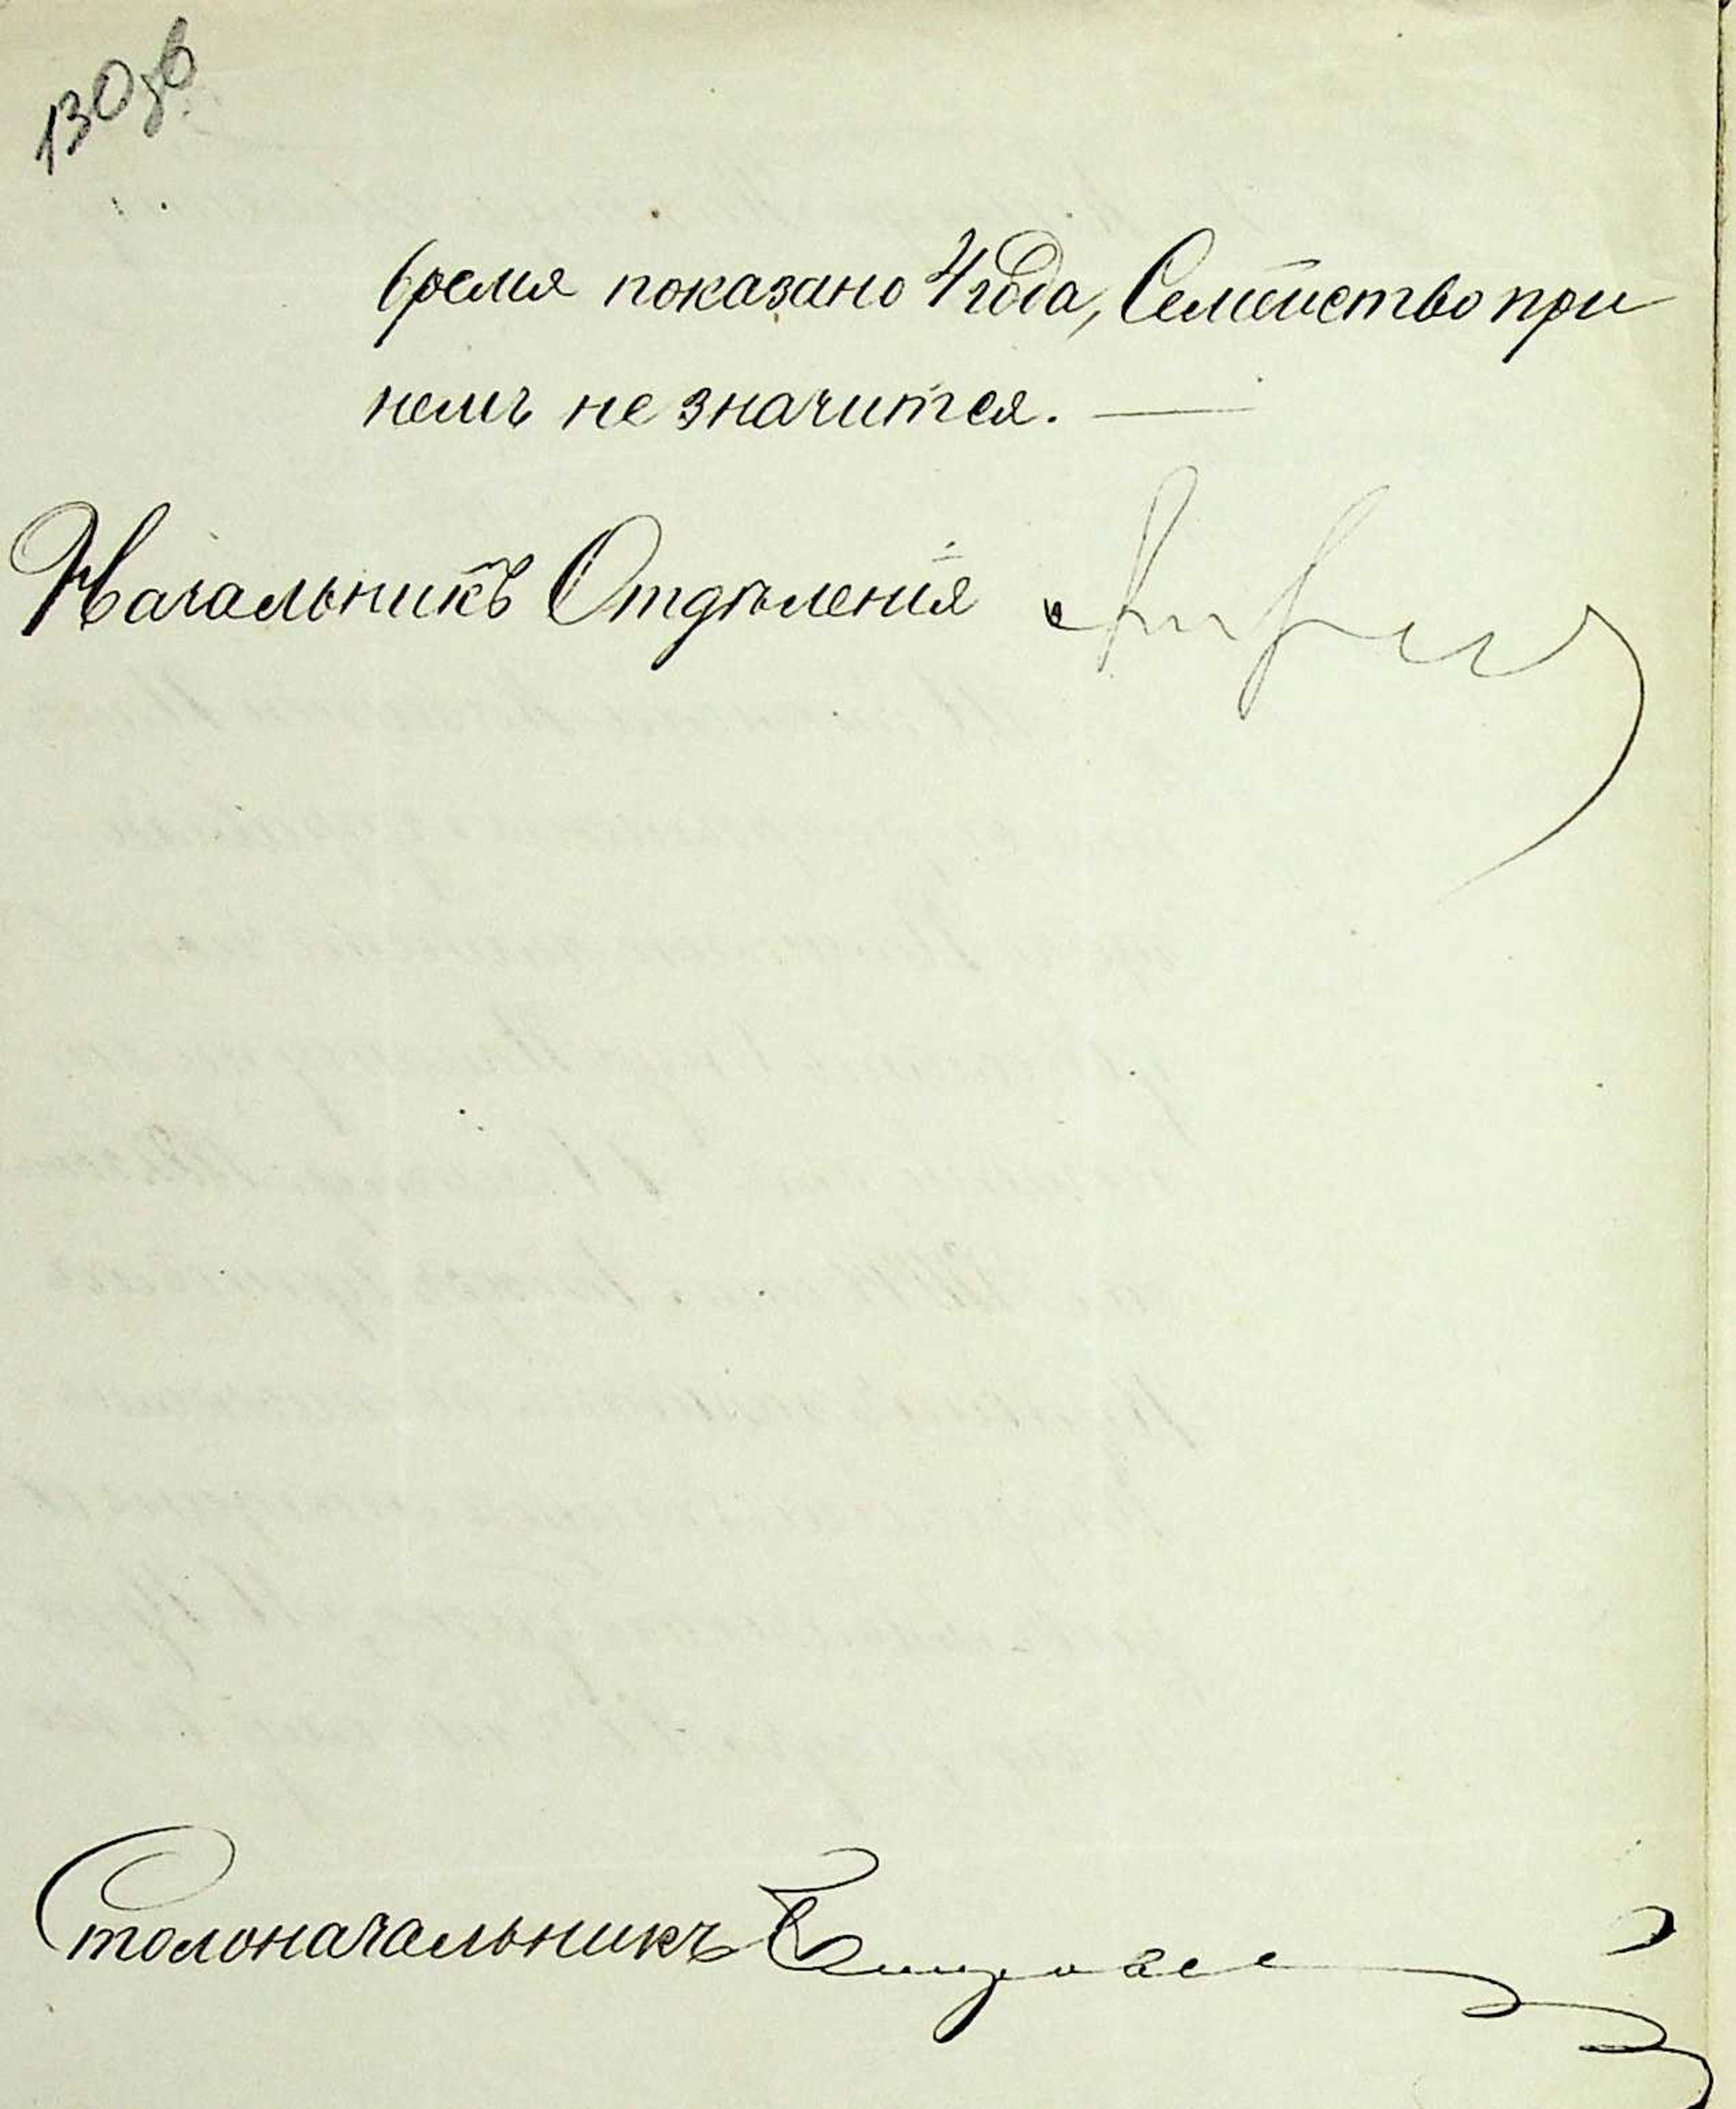 130об
время показано 4 года, Семейство при
немъ не значится. —
Начальникъ Отдѣленія
Столоначальникъ